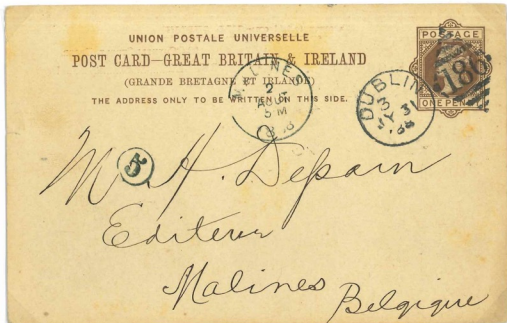 UNION POSTALE UNIVERSELLE
POST CARD—GREAT BRITAIN & IRELAND
(GRANDE BRETAGNE ET IRLANDE)
THE ADDRESS ONLY TO BE WRITTEN ON THIS SIDE.
POSTAGE
ONE PENNY
186
MALINES
2
AOUT
5 M
DUBLIN
3
JY 31
88
5
M H. Dessain
Editeur
Malines Belgique